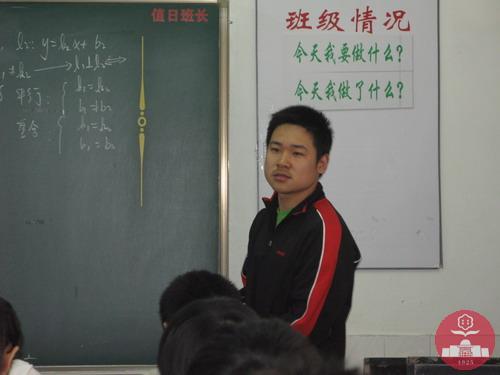 值日班长
l₂: y=k₂x+b₂
平行:
k₁=k₂
b₁≠b₂
重合
k₁=k₂
b₁=b₂
班级情况
今天我要做什么?
今天我做了什么?
1925